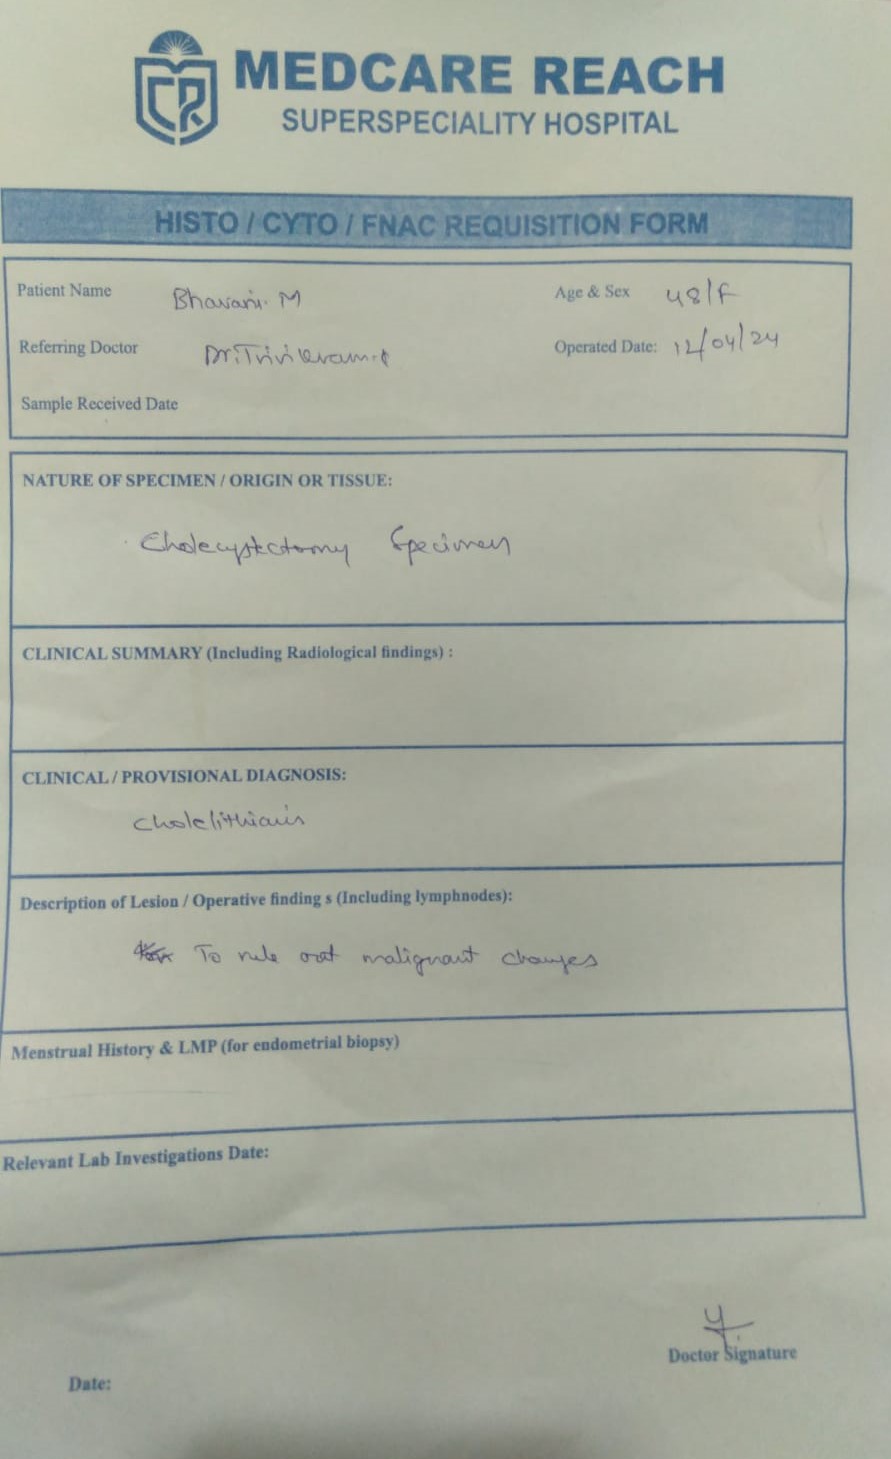 MEDCARE REACH
SUPERSPECIALITY HOSPITAL
HISTO / CYTO / FNAC REQUISITION FORM
Patient Name Bhavani. M Age & Sex 48/F
Referring Doctor Operated Date: 12/04/24
Sample Received Date
NATURE OF SPECIMEN / ORIGIN OR TISSUE:
Cholecystectomy Specimen
CLINICAL SUMMARY (Including Radiological findings) :
CLINICAL / PROVISIONAL DIAGNOSIS:
Cholelithiasis
Description of Lesion / Operative finding s (Including lymphnodes):
To rule out malignant changes
Menstrual History & LMP (for endometrial biopsy)
Relevant Lab Investigations Date:
Doctor Signature
Date: